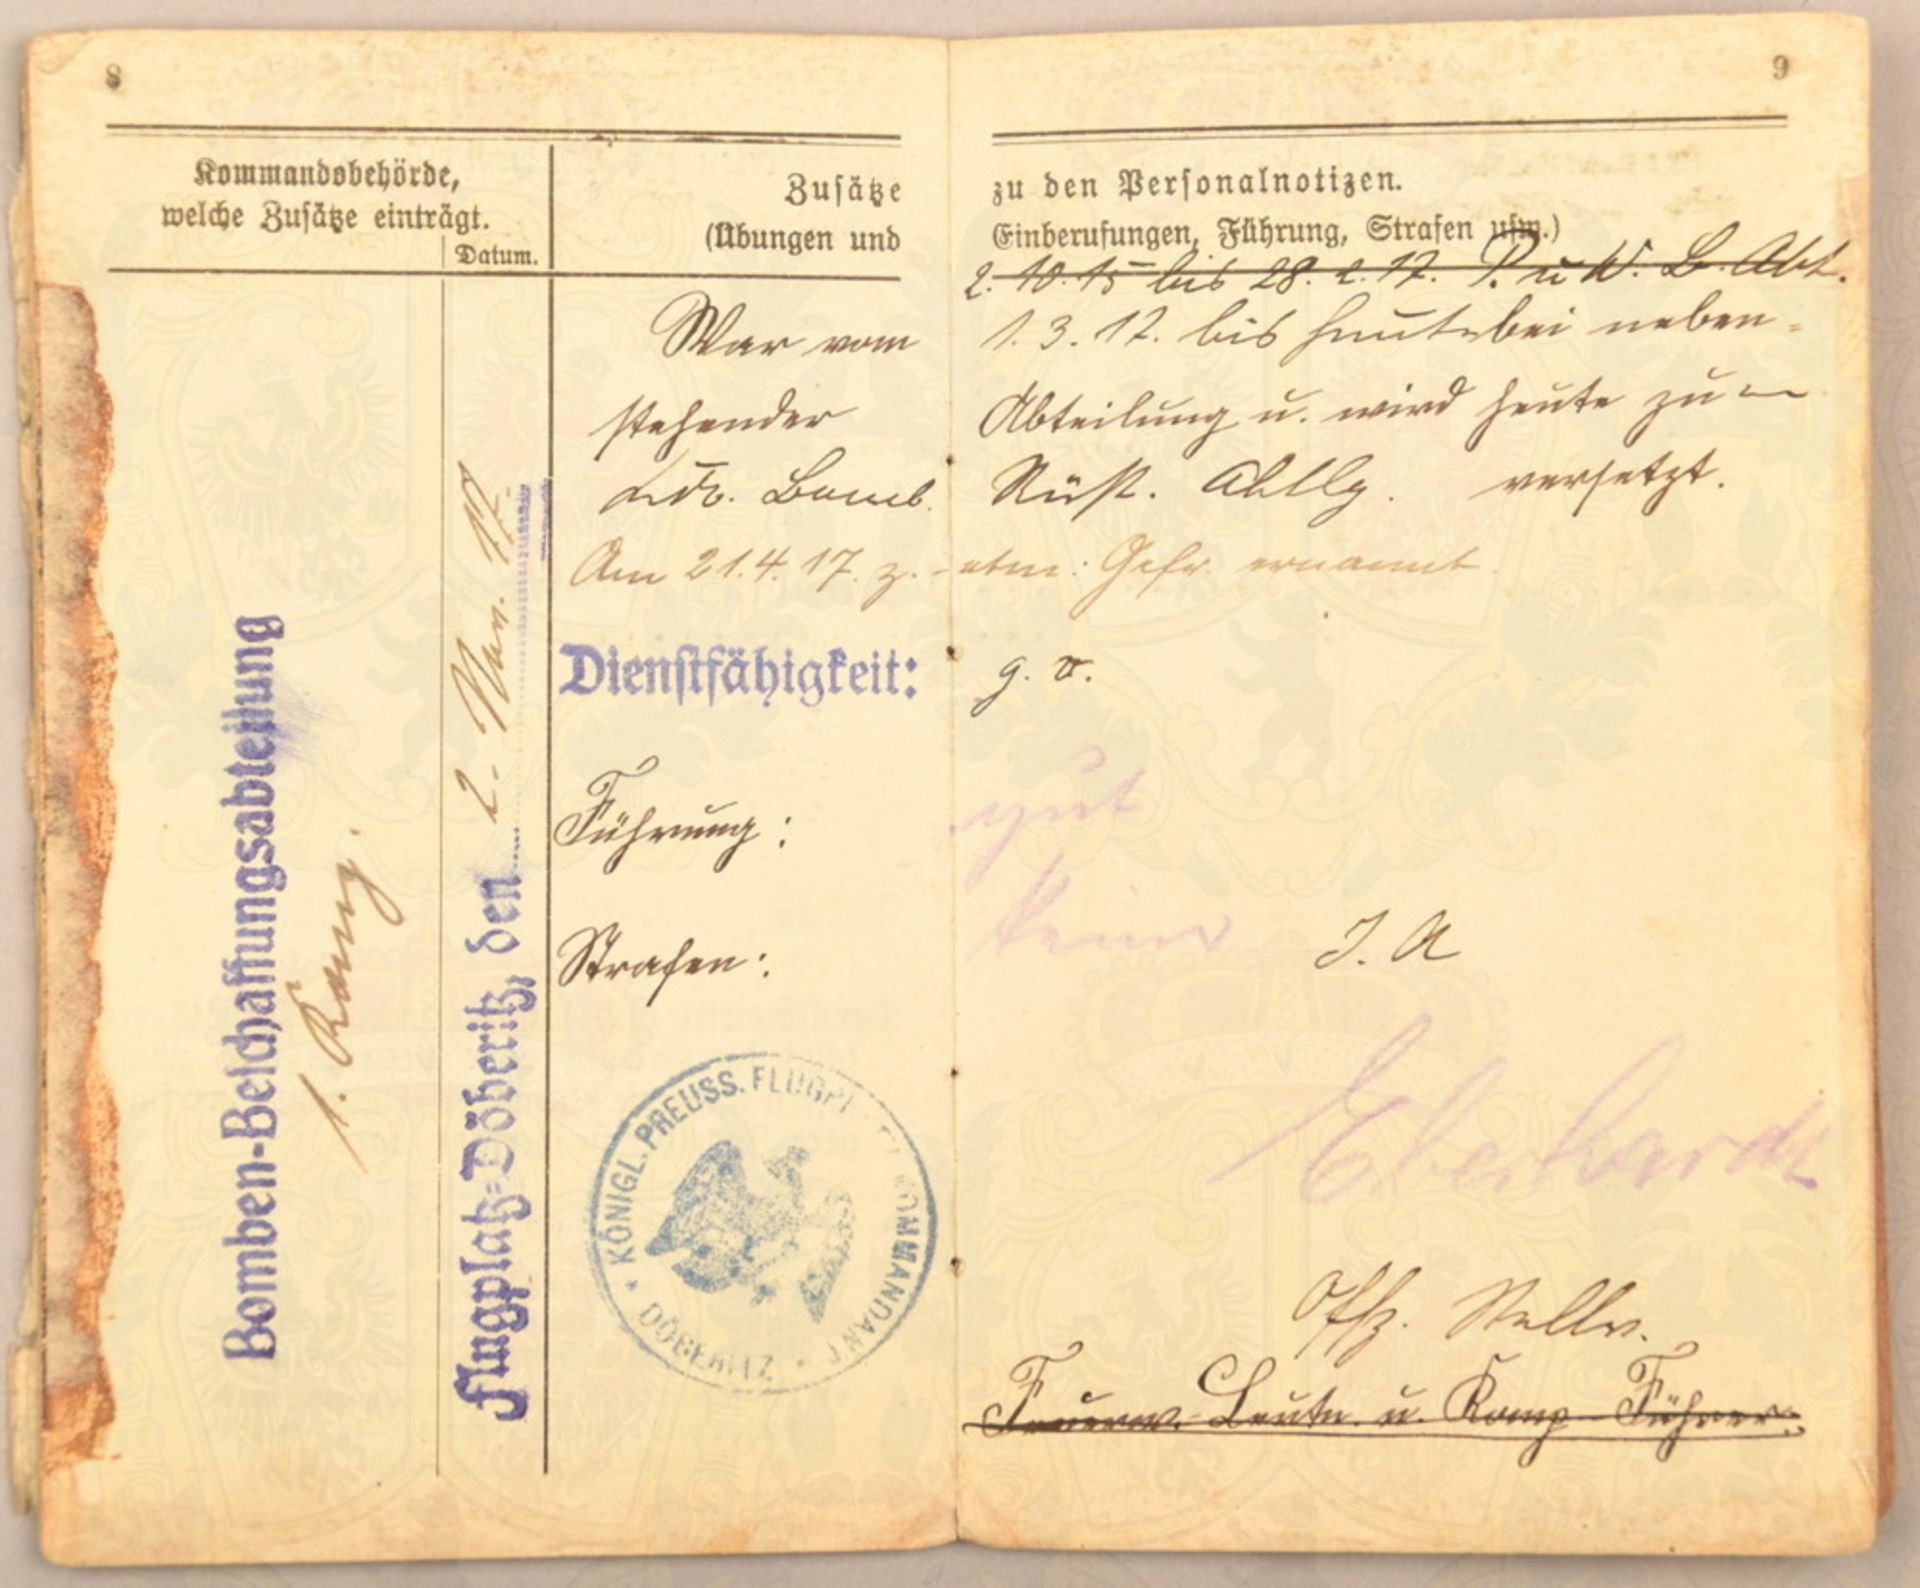 8
9
Kommandobehörde,
welche Zusätze einträgt.
Datum.
Zusätze zu den Personalnotizen.
(Übungen und Einberufungen, Führung, Strafen usw.)
2. 10. 15 bis 28. 2. 17. P. u W. B. Abt.
War vom 1. 3. 17. bis heute bei neben-
stehender Abteilung u. wird heute zur
Bomb. Rüst. Abtlg. versetzt.
Am 21.4.17. z. Gefr. ernannt.
Dienstfähigkeit: g. v.
Führung: gut
Strafen: keine
J. A
Eberhardt
Offz. Stellv.
Feuerw.-Leutn. u. Komp-Führer.
Bomben-Beschaffungsabteilung
1. Komp.
Flugplatz-Döberitz, den 2. Nov. 17.
KÖNIGL. PREUSS. FLUGPL KOMMANDANT
DÖBERITZ